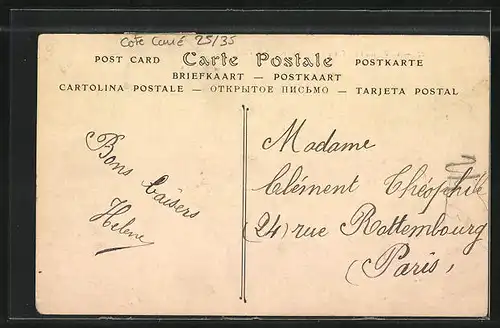 Cote Carré 25/35
POST CARD Carte Postale POSTKARTE
BRIEFKAART — POSTKAART
CARTOLINA POSTALE — ОТКРЫТОЕ ПИСЬМО — TARJETA POSTAL
Bons baisers
Helene
Madame
Clément Théophile
(24) rue Rottembourg
(Paris)